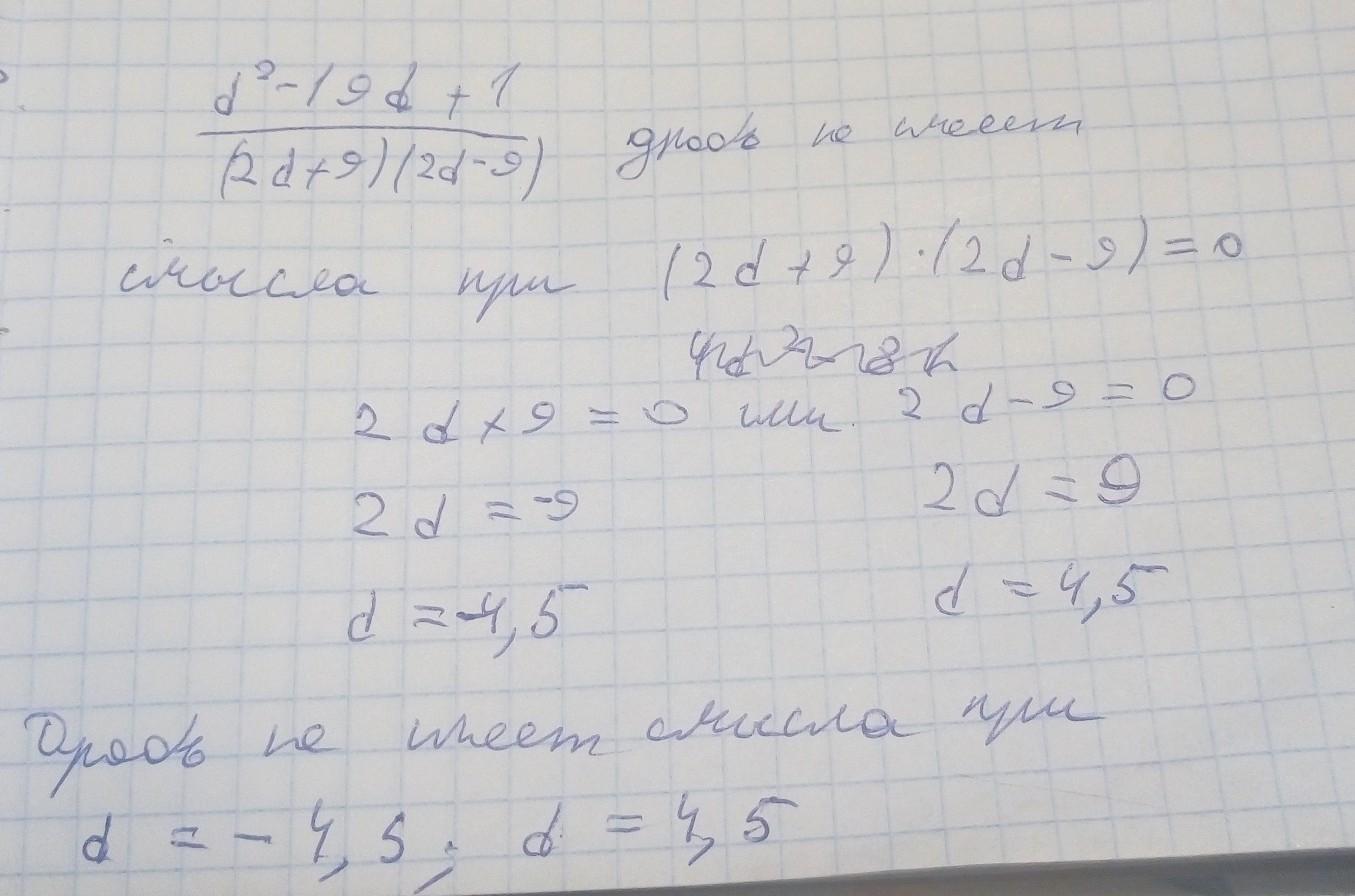 d² - 19d + 1
(2d+9)(2d-9) дробь не имеет
смысла при (2d+9)·(2d-9)=0
2d+9=0 или 2d-9=0
2d=-9 2d=9
d=-4,5 d=4,5
Дробь не имеет смысла при
d=-4,5; d=4,5